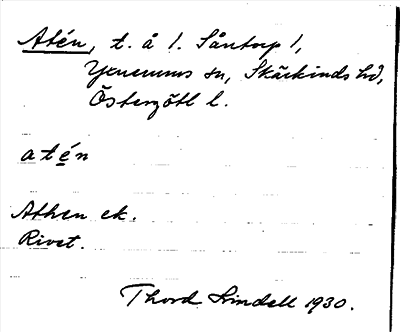 Atén, t. å 1. Såntorp 1,
Yxnerums sn, Skärkinds hd,
Östergötl l.
atén
Athen ek.
Rivet.
Thord Lindell 1930.